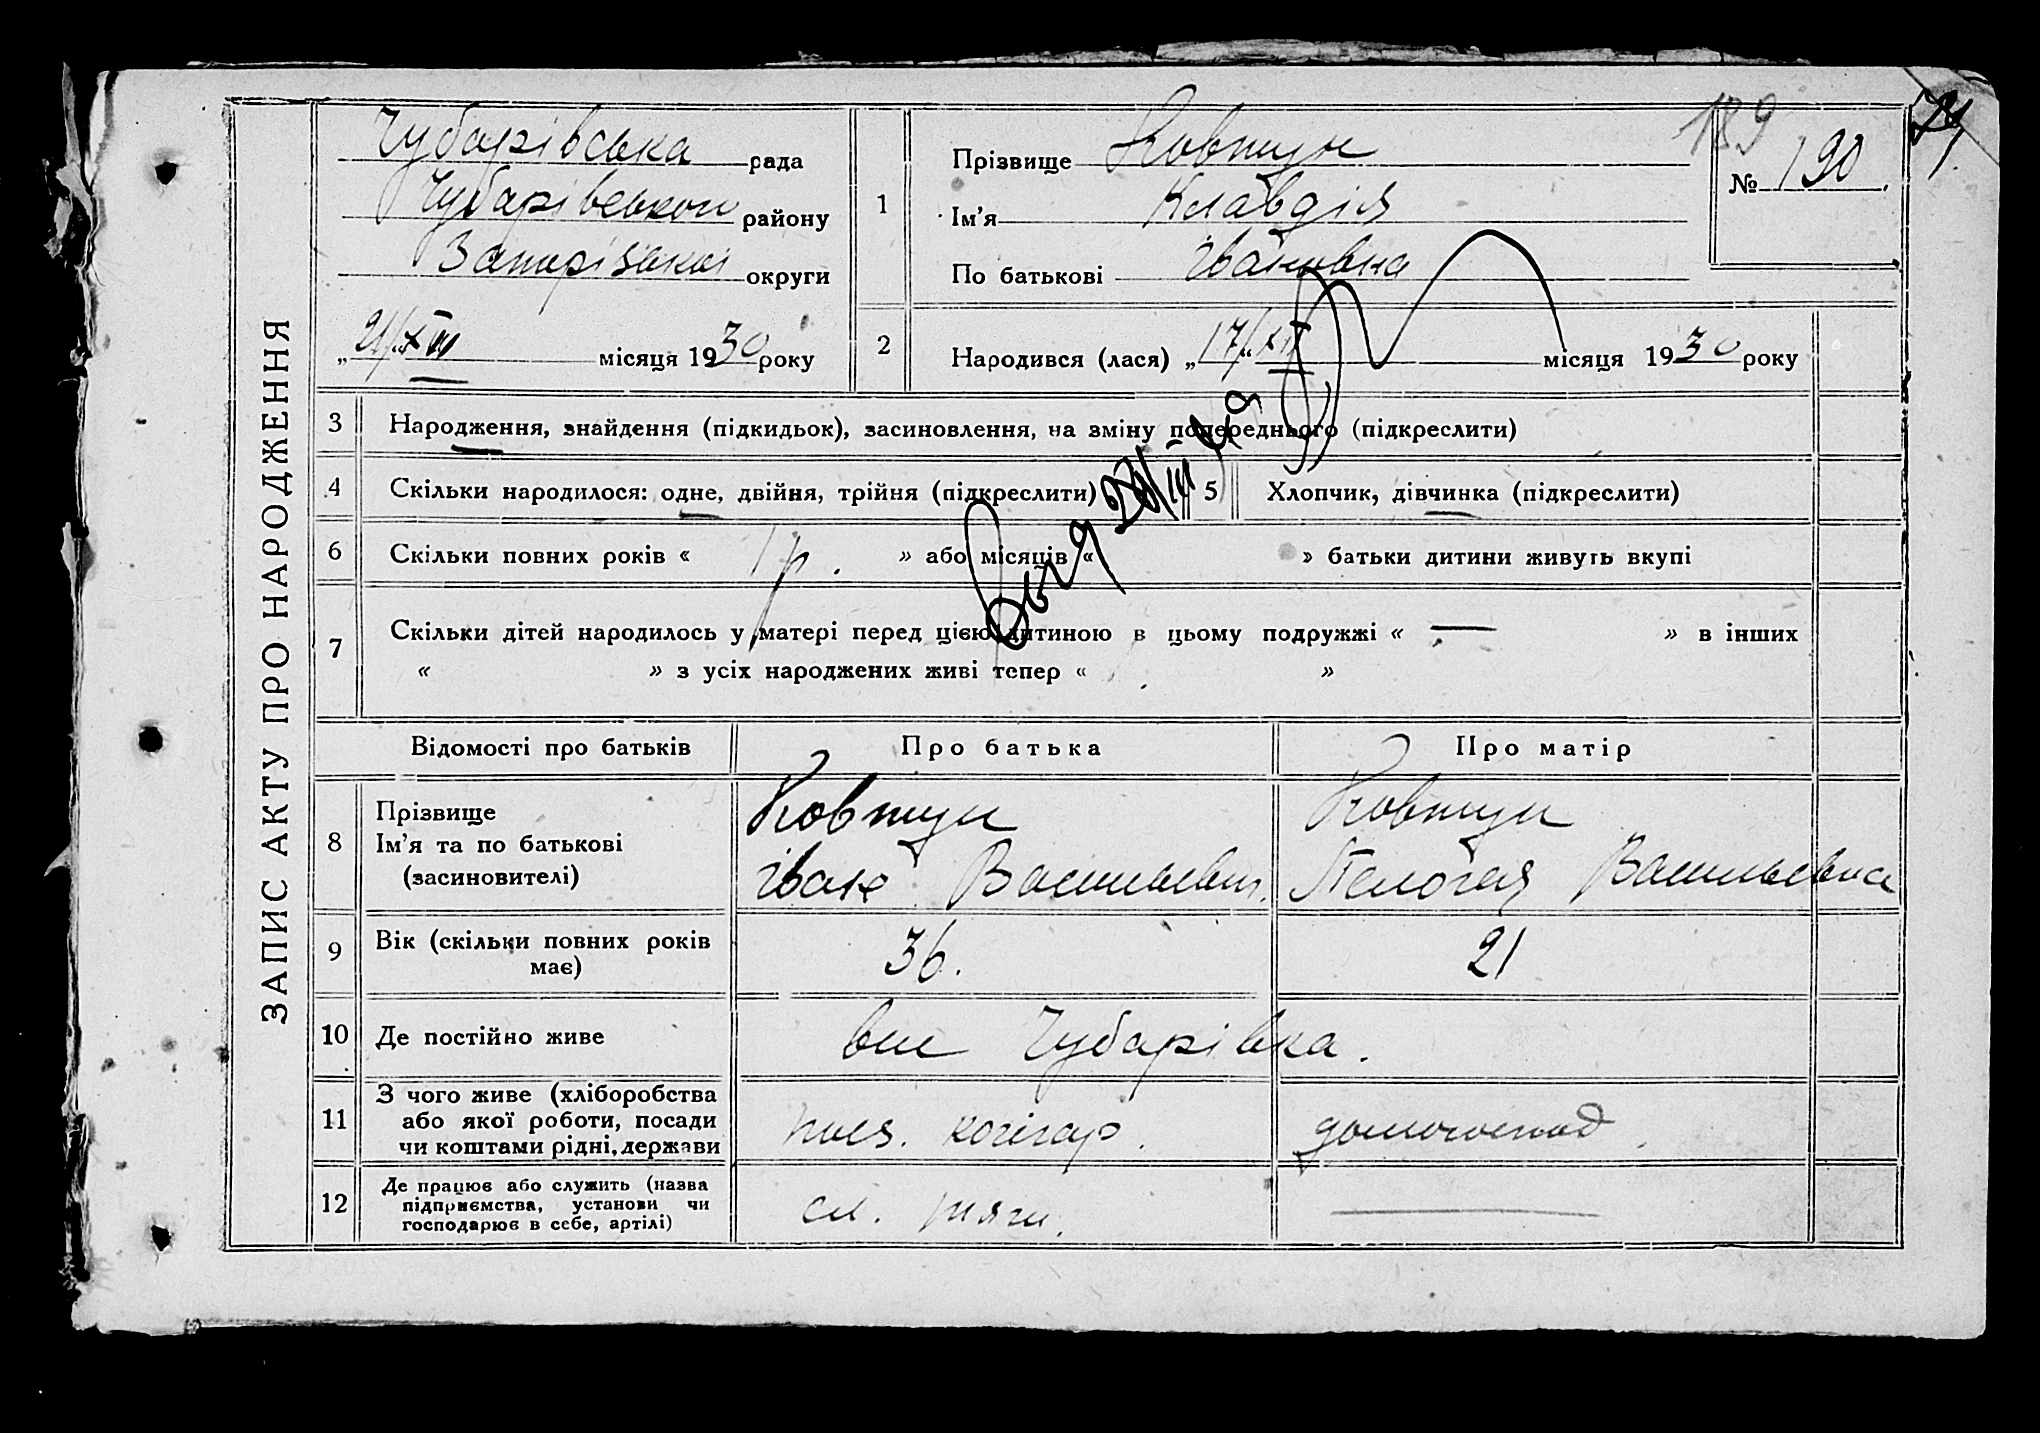 ЗАПИС АКТУ ПРО НАРОДЖЕННЯ
189
Чубарівська рада
Чубарівського району
Запорізької округи
21/XII місяця 1930 року
1 Прізвище Ковтун
Ім'я Клавдія
По батькові Івановна
№ 190.
2 Народився (лася) „17/XII“ місяця 1930 року
3 Народження, знайдення (підкидьок), засиновлення, на зміну попереднього (підкреслити)
4 Скільки народилося: одне, двійня, трійня (підкреслити)
5 Хлопчик, дівчинка (підкреслити)
6 Скільки повних років « 1 р. » або місяців « » батьки дитини живуть вкупі
7 Скільки дітей народилось у матері перед цією дитиною в цьому подружжі « — » в інших
« » з усіх народжених живі тепер « »
Відомості про батьків Про батька Про матір
8 Прізвище Ковтун Ковтун
Ім'я та по батькові Іван Васильевич Пелогея Васильевна
(засиновителі)
9 Вік (скільки повних років 36. 21
має)
10 Де постійно живе Чубарівка.
11 З чого живе (хліборобства
або якої роботи, посади кочегар. домогоспод.
чи коштами рідні, держави
12 Де працює або служить (назва
підприємства, установи чи сл. тяги. —
господарює в себе, артілі)